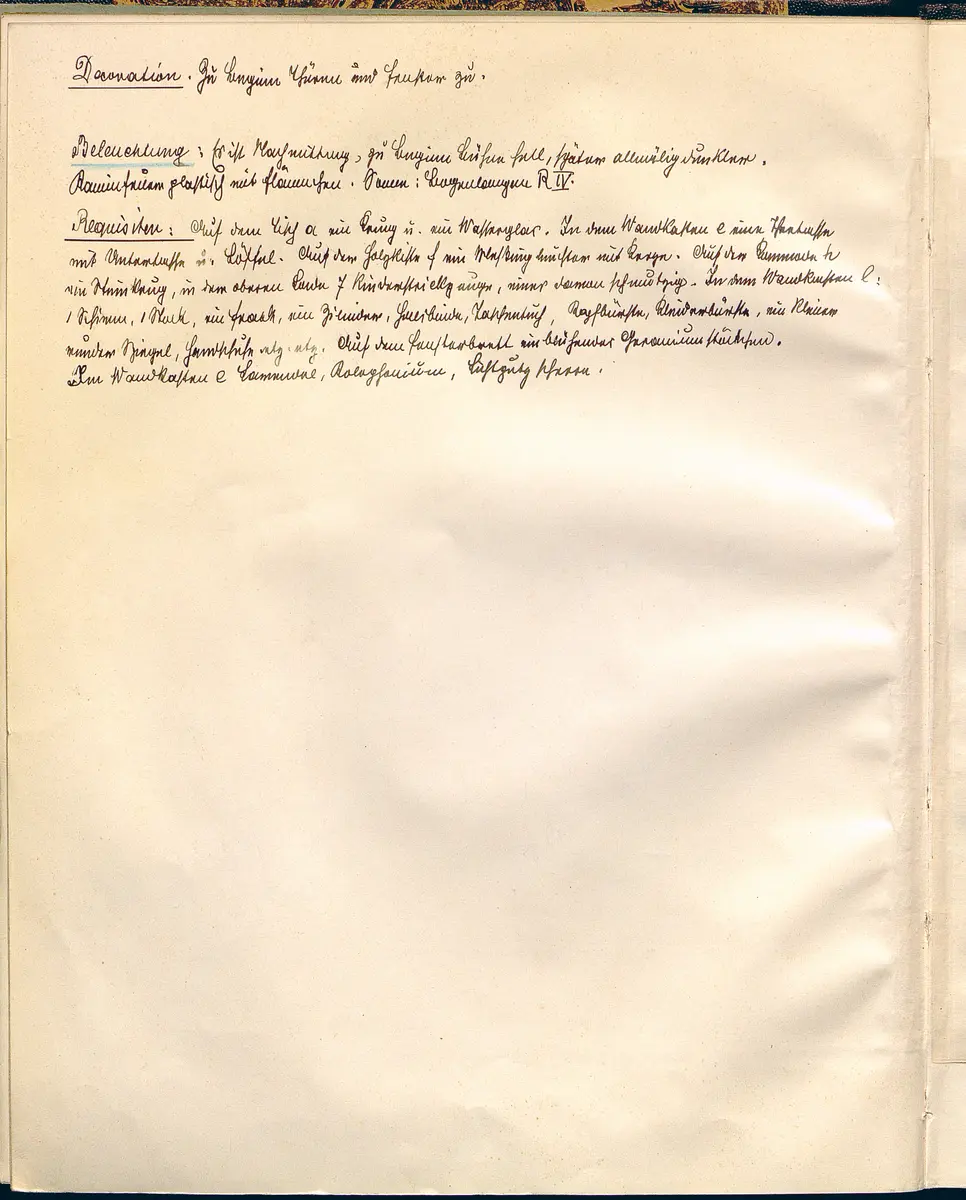 Decoration. Zu Beginn Thüren und Fenster zu.
Beleuchtung: Es ist Nachmittag, zu Beginn Bühne hell, später allmälig dunkler.
Kaminfeuer plastisch mit Flämmchen. Sonne: Bogenlampen R IV.
Requisiten: Auf dem Tisch a ein Krug u. ein Wasserglas. In dem Wandkasten e eine Theetasse
mit Untertasse u. Löffel. Auf der Holzkiste f ein Messingleuchter mit Kerze. Auf der Commode h
ein Steinkrug, in der oberen Lade 7 Kinderstrickzeuge, eines davon schmutzig. In dem Wandkasten l:
1 Schirm, 1 Stock, ein Frack, ein Zilinder, Halsbinde, Taschentuch, Kopfbürste, Kleiderbürste, ein kleiner
runder Spiegel, Handschuhe etz. etz. Auf dem Fensterbrett ein blühendes Geraniumstöckchen.
Im Wandkasten e Lavendel, Kolophonium, Lichtputzschere.